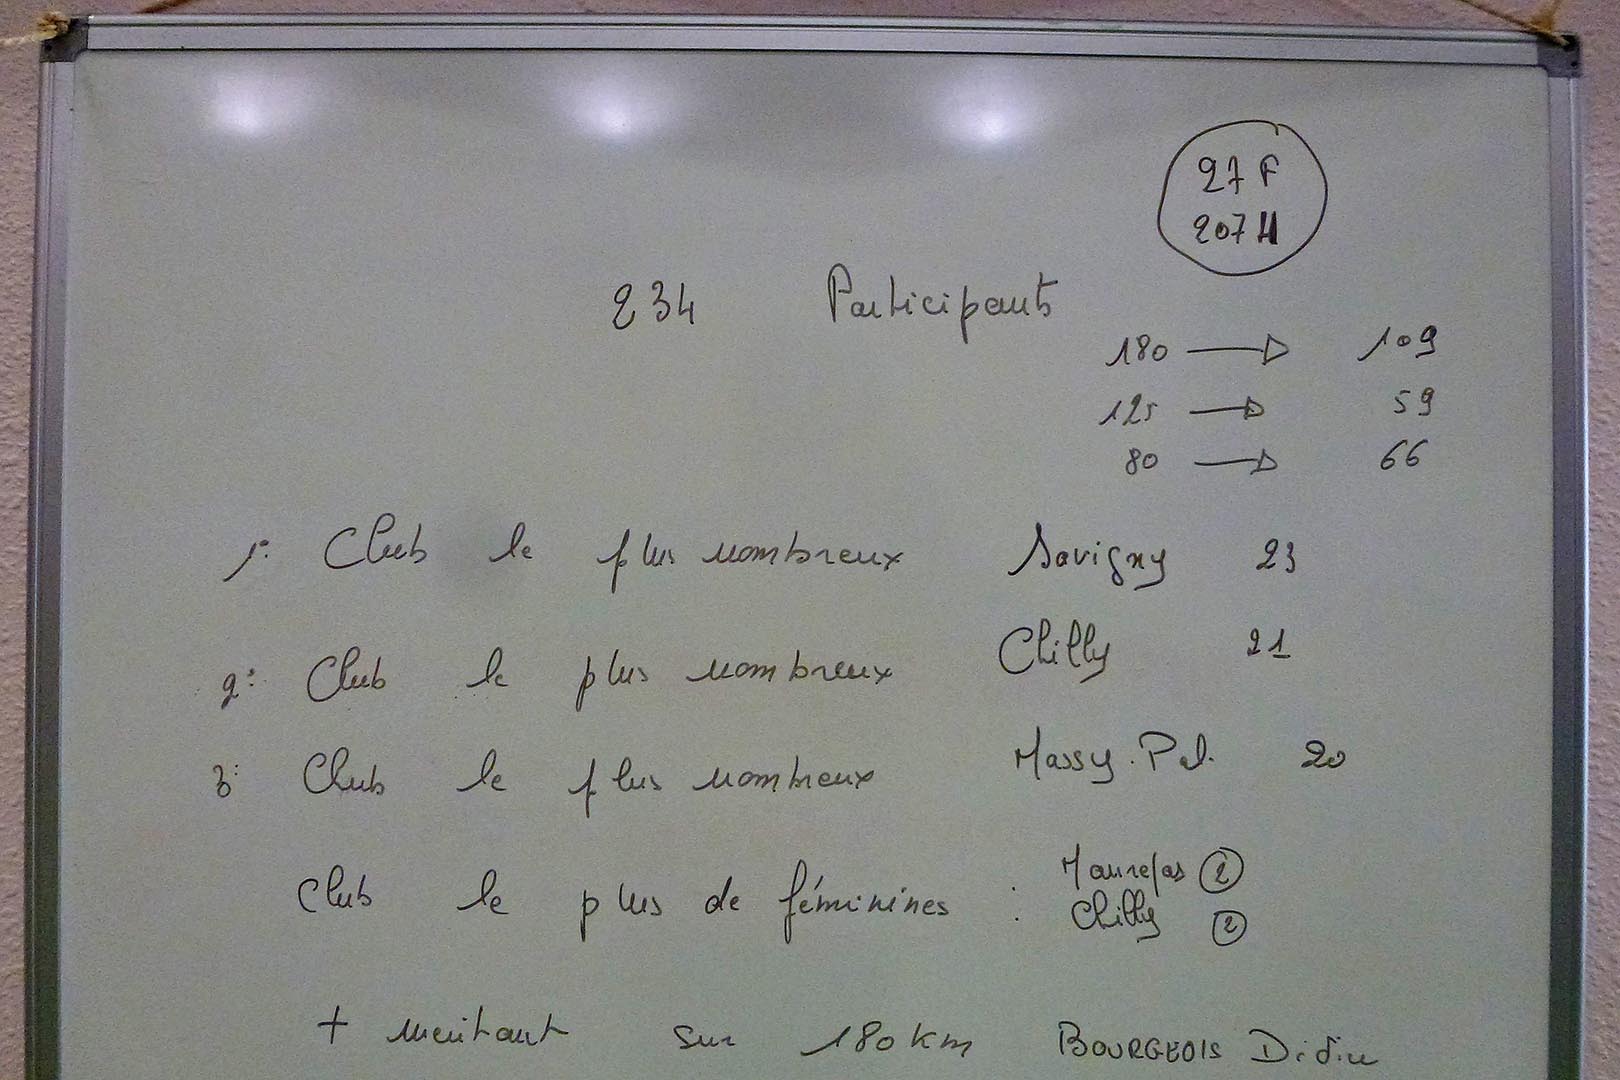 27 F
207 H
234 Participants
180 → 109
125 → 59
80 → 66
1° Club le plus nombreux Savigny 23
2° Club le plus nombreux Chilly 21
3° Club le plus nombreux Massy.Pal. 20
Club le plus de féminines : Maurepas 2
Chilly 2
+ meritant sur 180 km BOURGEOIS Didier